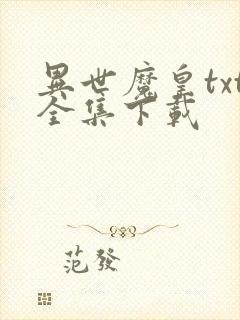 異世魔皇txt
全集下載
范發